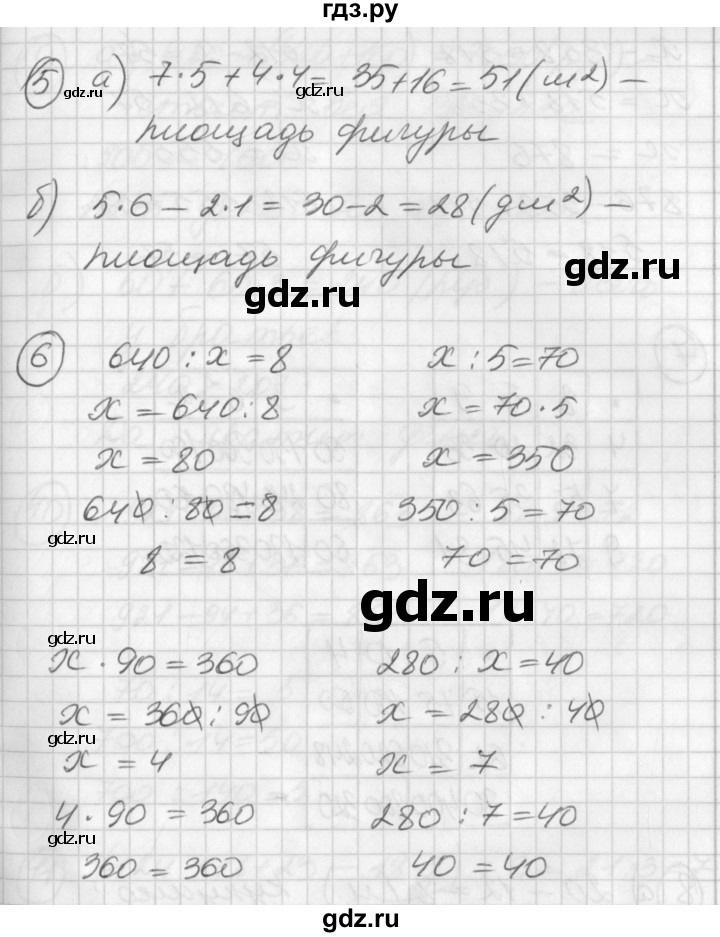 гдз.ру
⑤ а) 7·5+4·4= 35+16=51(м²) —
площадь фигуры
б) 5·6 — 2·1 = 30-2=28(дм²) —
площадь фигуры
⑥ 640 : х = 8
х = 640:8
х = 80
640 : 80 = 8
8 = 8
х : 5=70
х = 70·5
х = 350
350 : 5 = 70
70 = 70
х · 90 = 360
х = 360 : 90
х = 4
4 · 90 = 360
360 = 360
280 : х = 40
х = 280 : 40
х = 7
280 : 7 = 40
40 = 40
gdz.ru
gdz.ru
gdz.ru
gdz.ru
gdz.ru
gdz.ru
gdz.ru
gdz.ru
gdz.ru
gdz.ru
gdz.ru